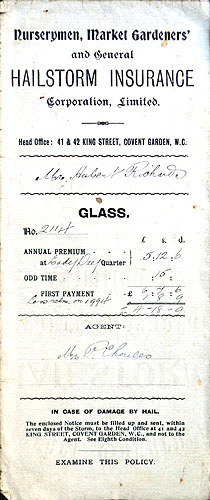 Nurserymen, Market Gardeners'
and General
HAILSTORM INSURANCE
Corporation, Limited.
Head Office: 41 & 42 KING STREET, COVENT GARDEN, W.C.
Mr. Hubert Richards
GLASS.
No. 2114
£ s. d.
ANNUAL PREMIUM
at Lady Day Quarter } 5 : 12 : 6
ODD TIME : 15 :
FIRST PAYMENT £ 6 : 7 : 6
1 : 9 : 6
£ 4 - 18 - 0
AGENT:
Mr.
IN CASE OF DAMAGE BY HAIL.
The enclosed Notice must be filled up and sent, within
seven days of the Storm, to the Head Office at 41 and 42
KING STREET, COVENT GARDEN, W.C., and not to the
Agent. See Eighth Condition.
EXAMINE THIS POLICY.